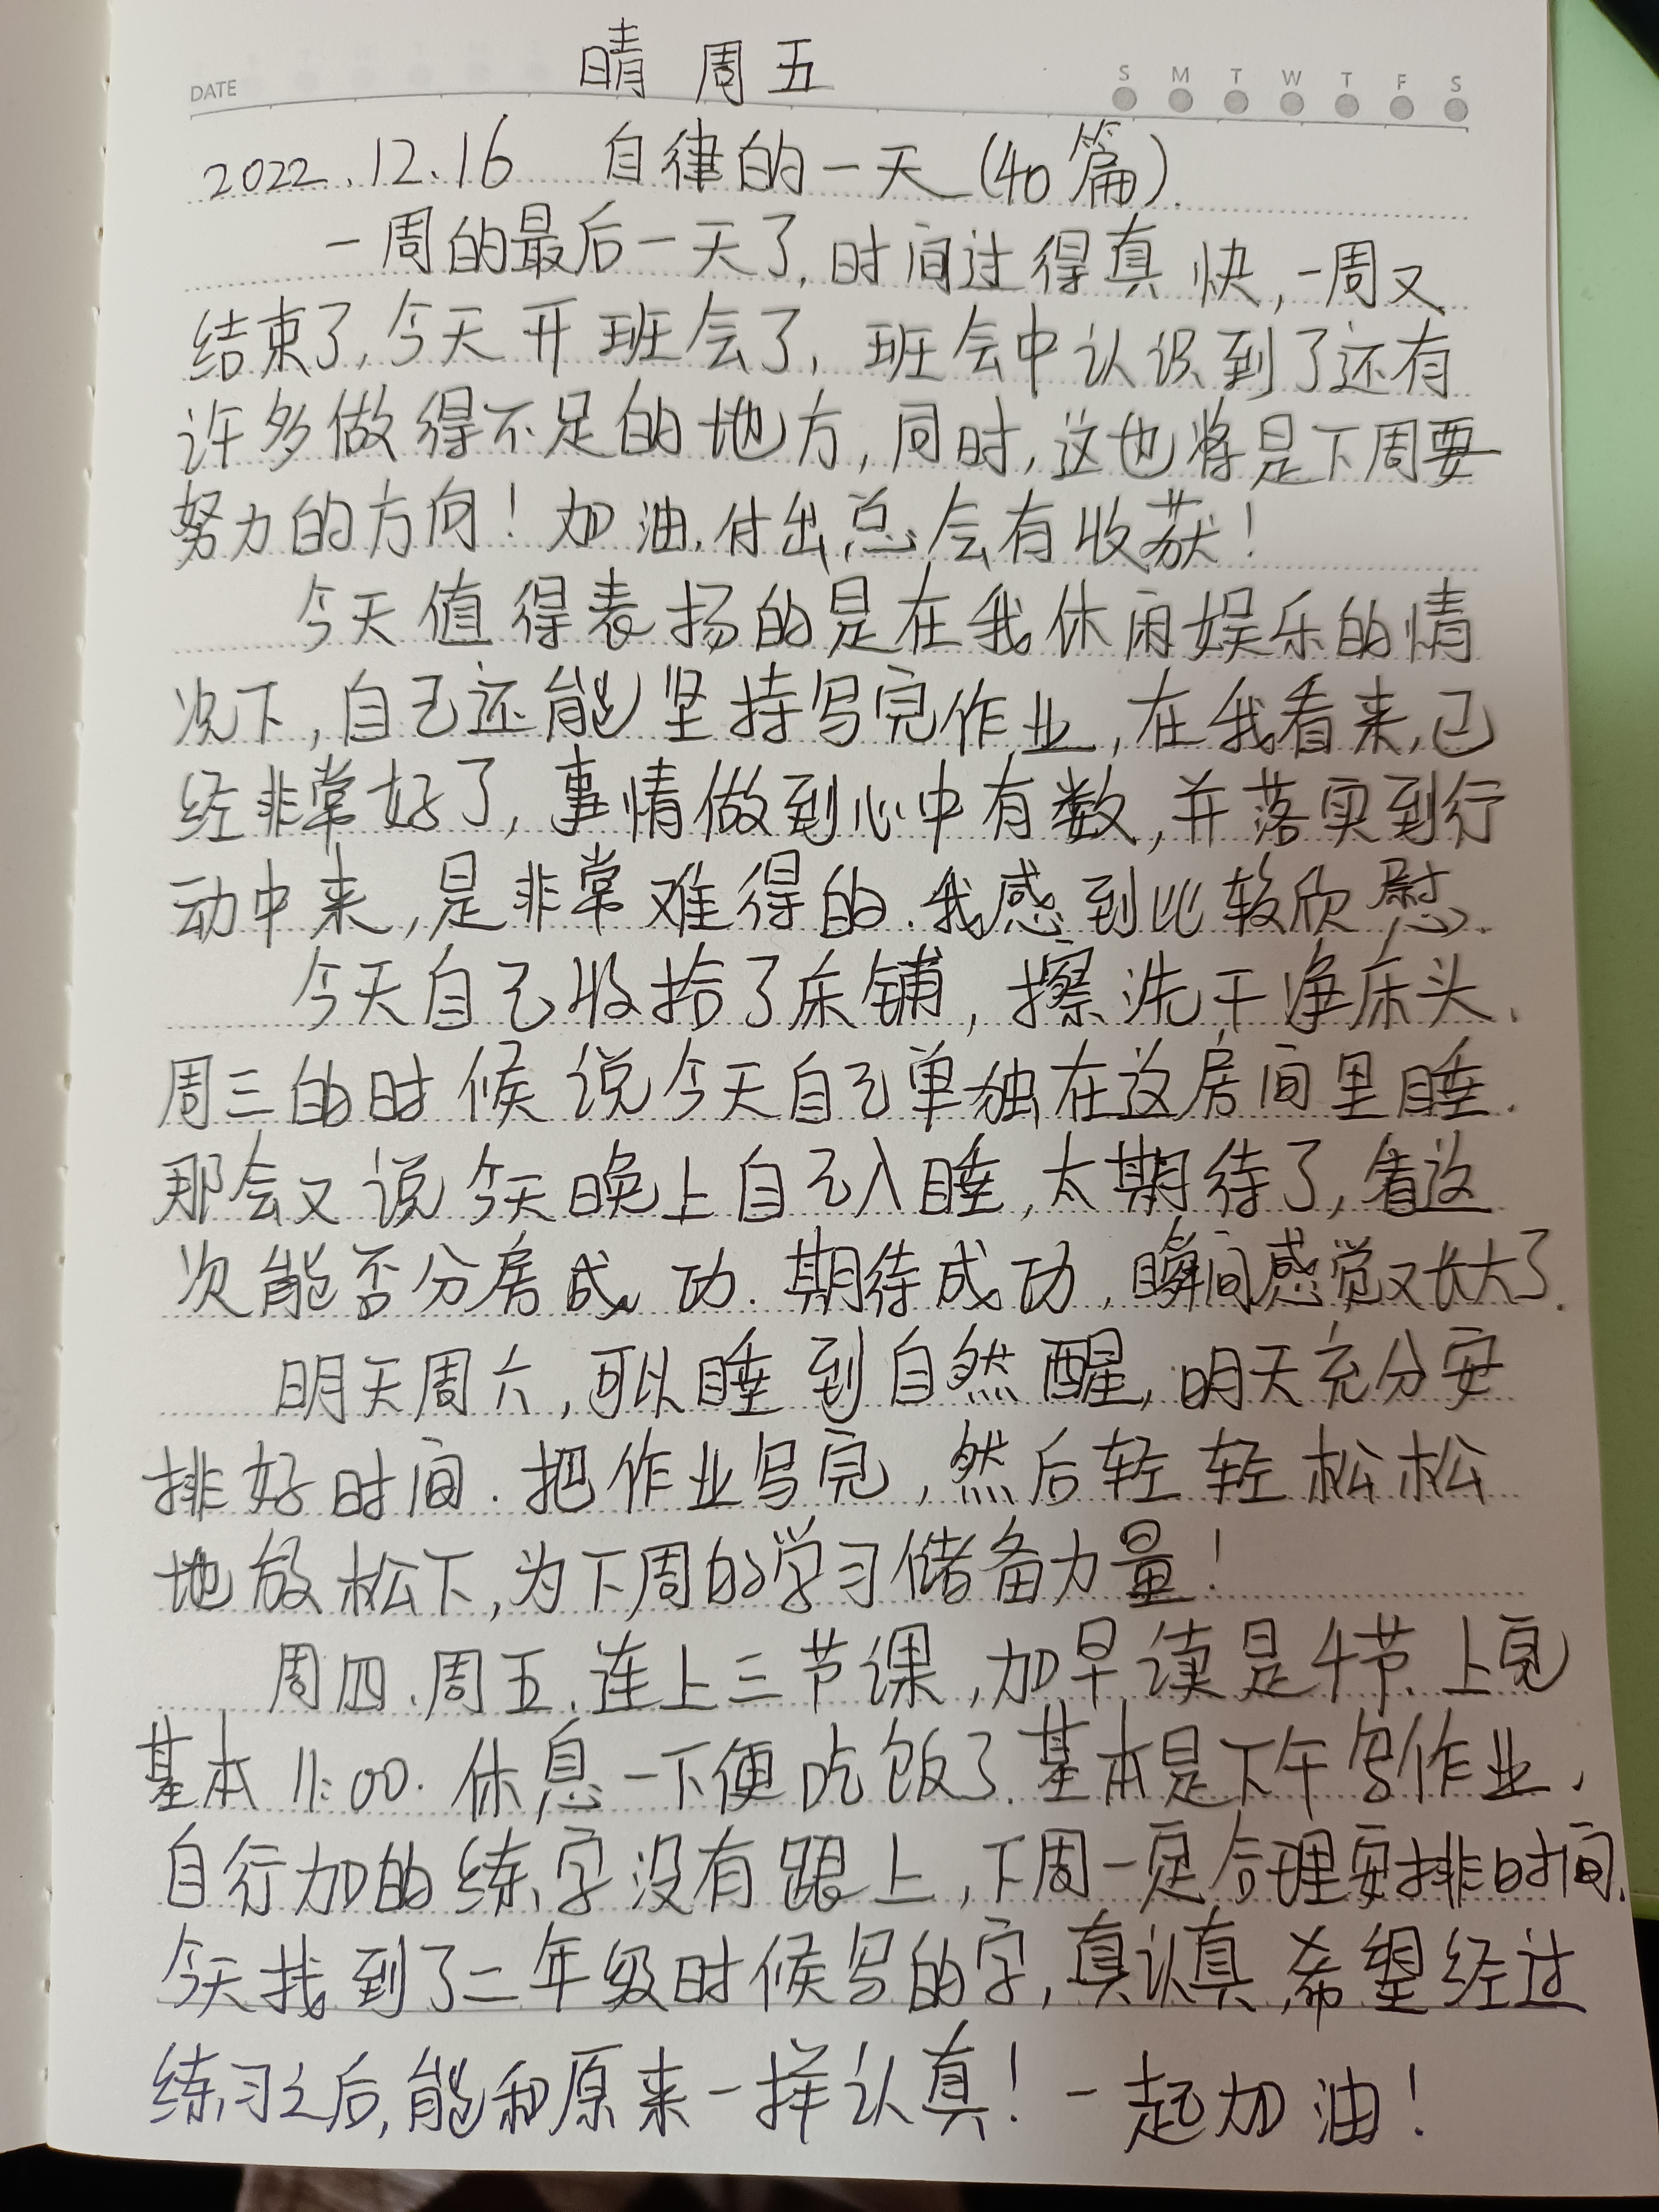 晴 周五
DATE
S M T W T F S
2022.12.16 自律的一天(40篇).
一周的最后一天了,时间过得真快,一周又
结束了,今天开班会了,班会中认识到了还有
许多做得不足的地方,同时,这也将是下周要
努力的方向!加油,付出总会有收获!
今天值得表扬的是在我休闲娱乐的情
况下,自己还能坚持写完作业,在我看来,已
经非常好了,事情做到心中有数,并落实到行
动中来,是非常难得的.我感到比较欣慰.
今天自己收拾了床铺,擦洗干净床头、
周三的时候说今天自己单独在这房间里睡.
那会又说今天晚上自己入睡,太期待了,看这
次能否分房成功.期待成功,瞬间感觉又长大了.
明天周六,可以睡到自然醒,明天充分安
排好时间.把作业写完,然后轻轻松松
地放松下,为下周的学习储备力量!
周四、周五、连上三节课,加早读是4节.上完
基本11:00.休息一下便吃饭了.基本是下午写作业.
自行加的练字没有跟上,下周一定合理安排时间.
今天找到了二年级时候写的字,真认真,希望经过
练习之后,能和原来一样认真!一起加油!